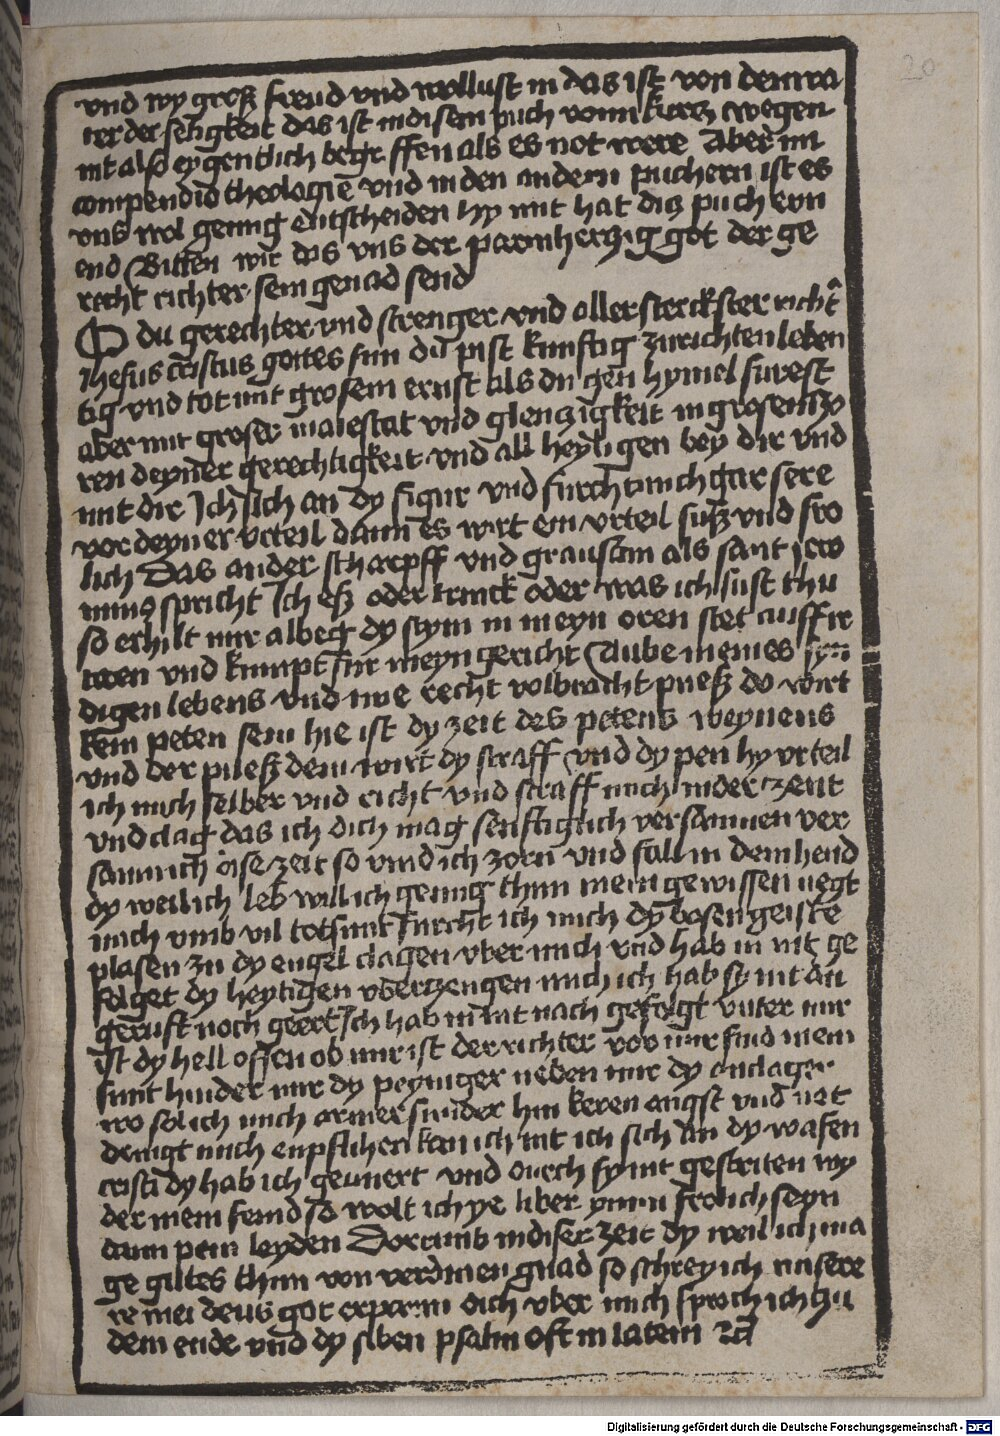 20
vnd wy groß freud vnd wollust in das ist von dem va
ter der seligkeit das ist in disem puch vonn kurcz wegen
nit also eygentlich begriffen als es not were Aber im
compendio theologie vnd in den andern puchern ist es
vns wol genug entscheiden hy mit hat diz puch eyn
end Bitten wir das vns der parmherczig got der ge
recht richter sein genad send
O du gerechter vnd strenger vnd aller sterckster richt̄
Jhesus cristus gottes sun du pist kunftig zu richten leben
tig vnd tot mit grosem ernst als du gen hymel furest
aber mit groser maiestat vnd glenczigkeit in grosem zo
ren deyner gerechtigkeit vnd all heyligen bey dir vnd
mit dir Ich sich an dy figur vnd furcht mich gar sere
vor deyner vrteil dann es wirt ein vrteil suß vnd fro
lich Das ander scharpff vnd grausam als sant jero
nimus spricht Ich eß oder trinck oder was ich sust thu
so erhilt mir albeg dy stym in meyn oren stet auff ir
toten vnd kumpt fur meyn gericht Aube meines
digen lebens vnd nie recht volbracht pueß do wirt
kein peten sein hie ist dy zeit des petens weynens
vnd der pueß dem wirt dy straff vnd dy pen hy vrteil
ich mich selber vnd richt vnd straff mich in der zeit
vnd clag das ich dich mag senftigclich versammen ver
samm ich dise zeit so vind ich zorn vnd fall in dein hend
dy weil ich leb will ich genug thun mein gewissen negt
mich vmb vil totsunt Furcht ich mich dy bosen geiste
plasen zu dy engel clagen vber mich vnd hab in nit ge
folget dy heyligen vberzeugen mich ich hab sy nit an
geruft noch geert Ich hab in nit nach gefolgt vnter mir
ist dy hell offen ob mir ist der richter vor mir sind mein
sunt hinder mir dy peyniger neben mir dy anclager
wo sol ich mich armer sunder hin keren angst vnd not
dringt mich enpflihen kan ich nit ich sich an dy wafen
cristi dy hab ich geunert vnd durch sy nit gestriten wy
der mein feind so wolt ich ye liber frolich seyn
dann pein leyden Dorumb in diser zeit dy weil ich ma
ge gutes thun von verdinen gnad so schrey ich misere
re mei deus got erparm dich vber mich sproch ich zu
dem ende vnd dy siben psalm oft in latein ꝛc̄
Digitalisierung gefördert durch die Deutsche Forschungsgemeinschaft - DFG